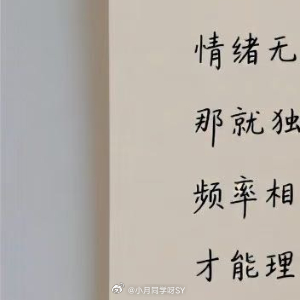 情绪无
那就独
频率相
才能理
@小月同学呀SY